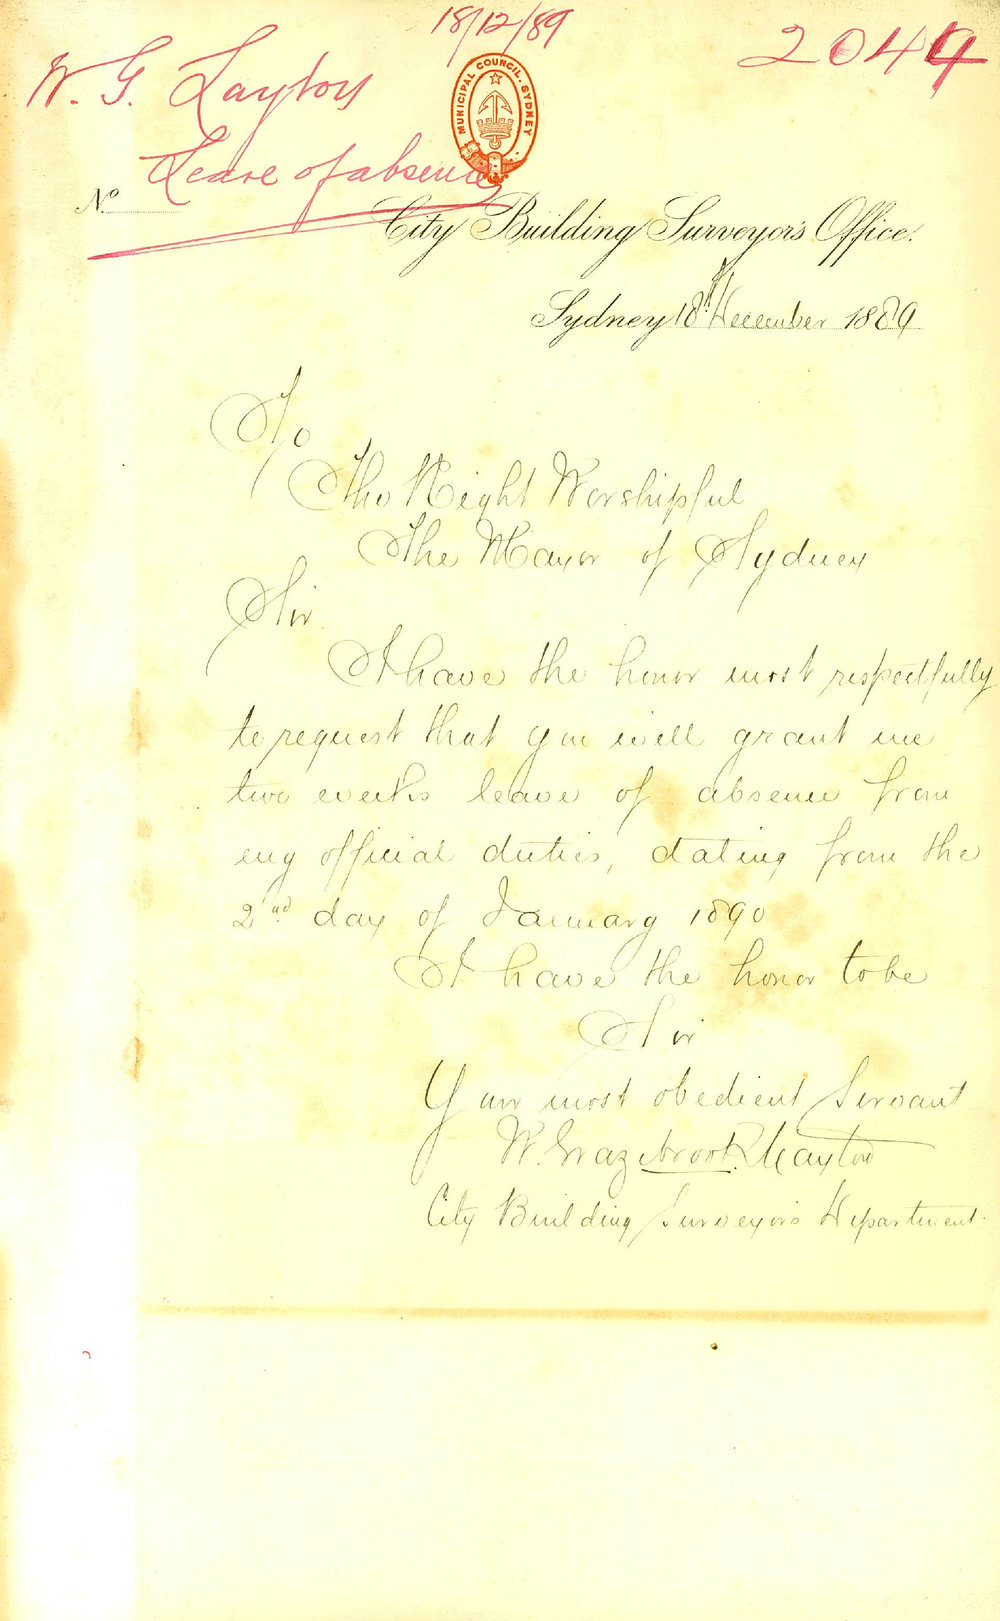 18/12/89
2044
W. G. Layton
Leave of absence
MUNICIPAL COUNCIL. SYDNEY
No
City Building Surveyor's Office.
Sydney 18th December 1889
To
The Right Worshipful
The Mayor of Sydney
Sir
I have the honor most respectfully
to request that you will grant me
two weeks leave of absence from
my official duties, dating from the
2nd day of January 1890
I have the honor to be
Sir
Your most obedient Servant
W. Grazebrook Layton
City Building Surveyors Department